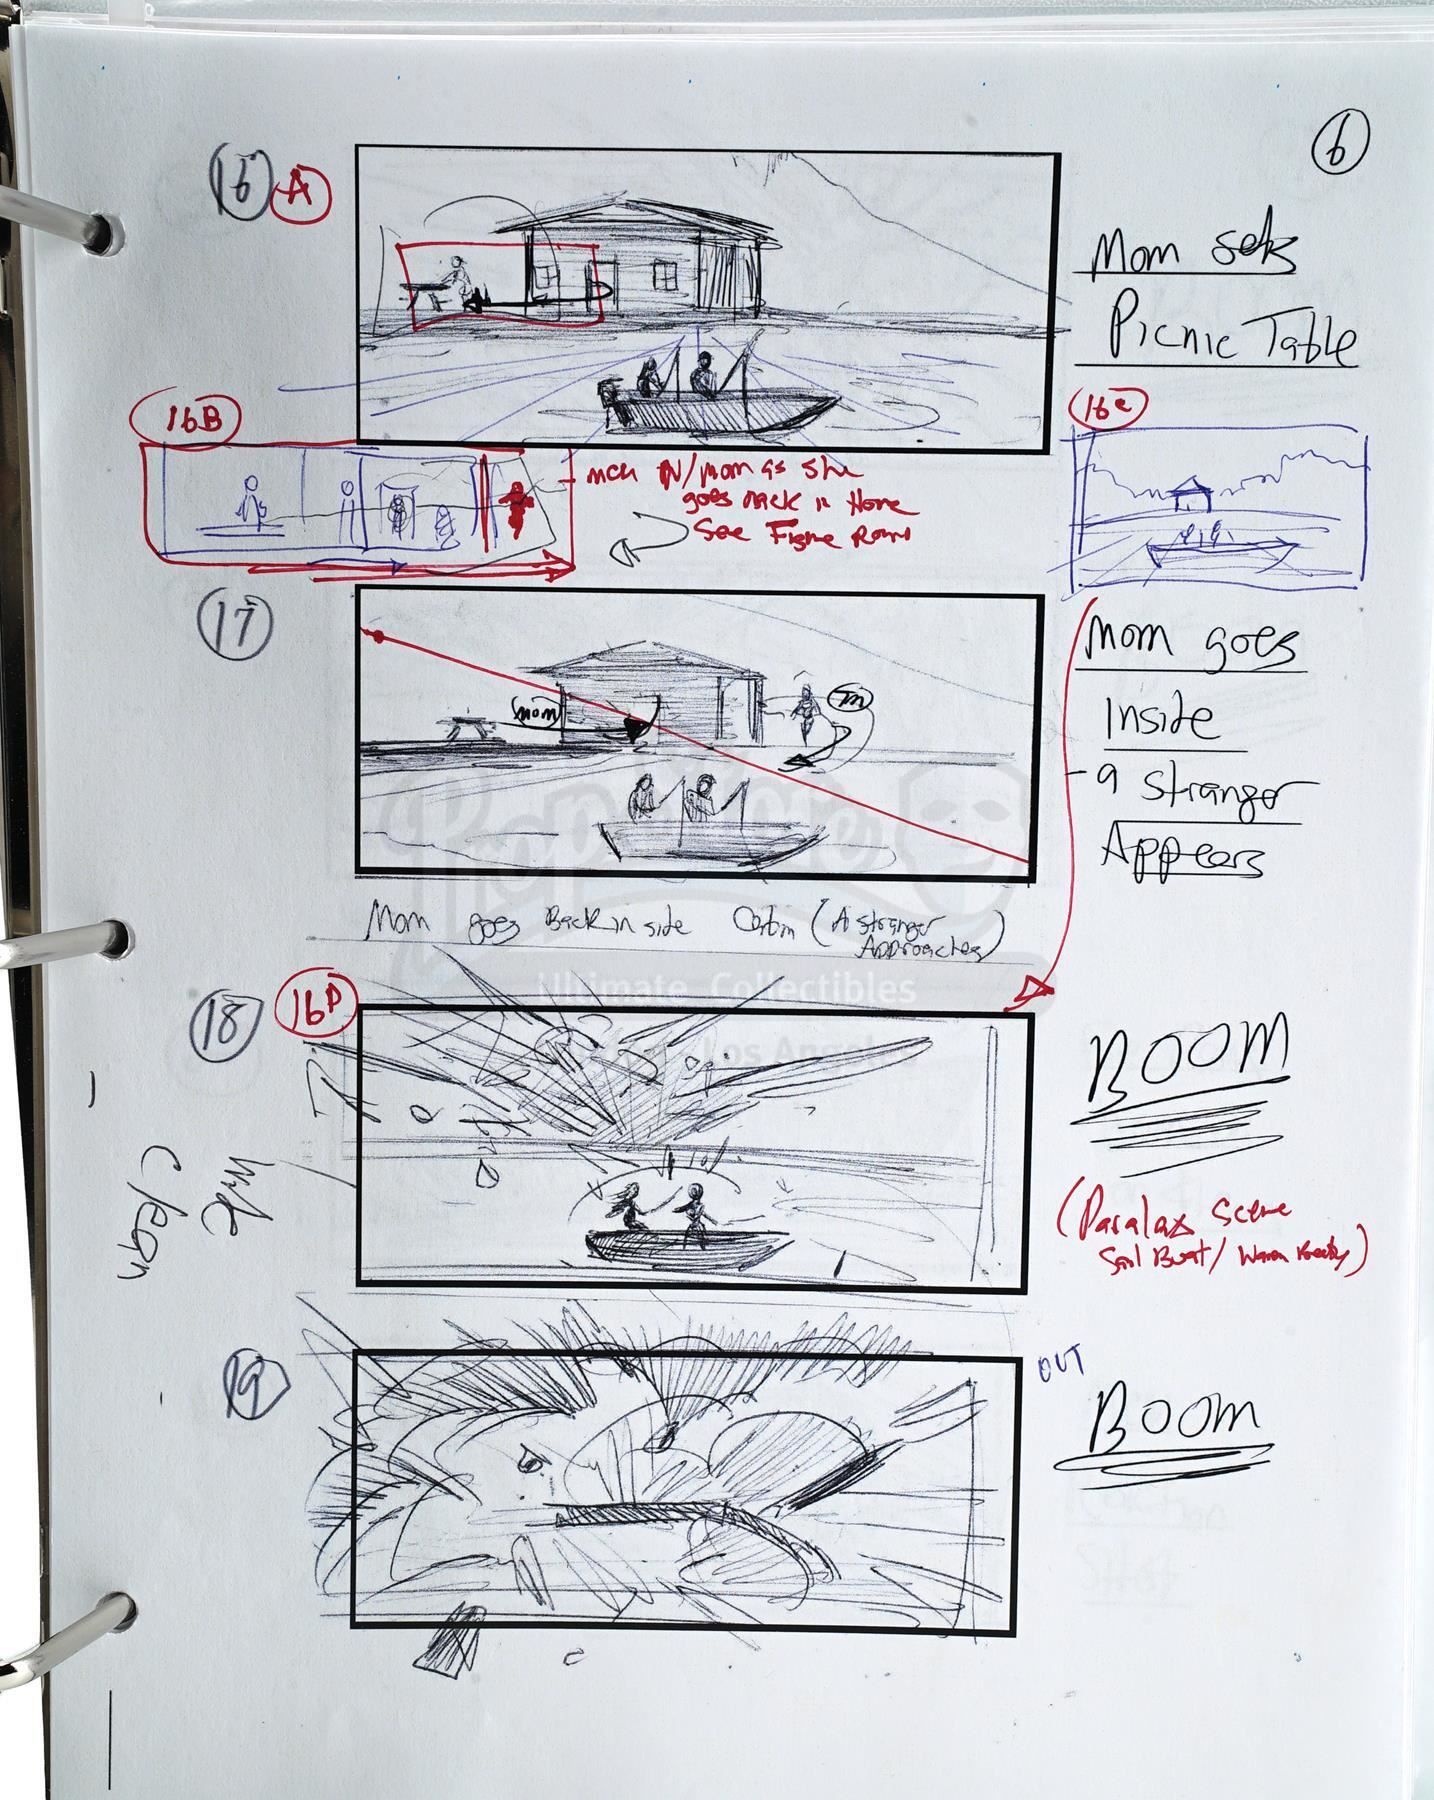 6
16 A
Mom sets
Picnic Table
16B
16C
W/mom as she
goes back n Home
See Figure Room
17
mom
m
Mom goes
Inside
- a stranger
Appears
Mom goes Back in side Cabin (A stranger
Approaches)
PropStore
Ultimate Collectibles
London · Los Angeles
18
16D
BOOM
(Paralax Scene
Clean
19
OUT
BOOM